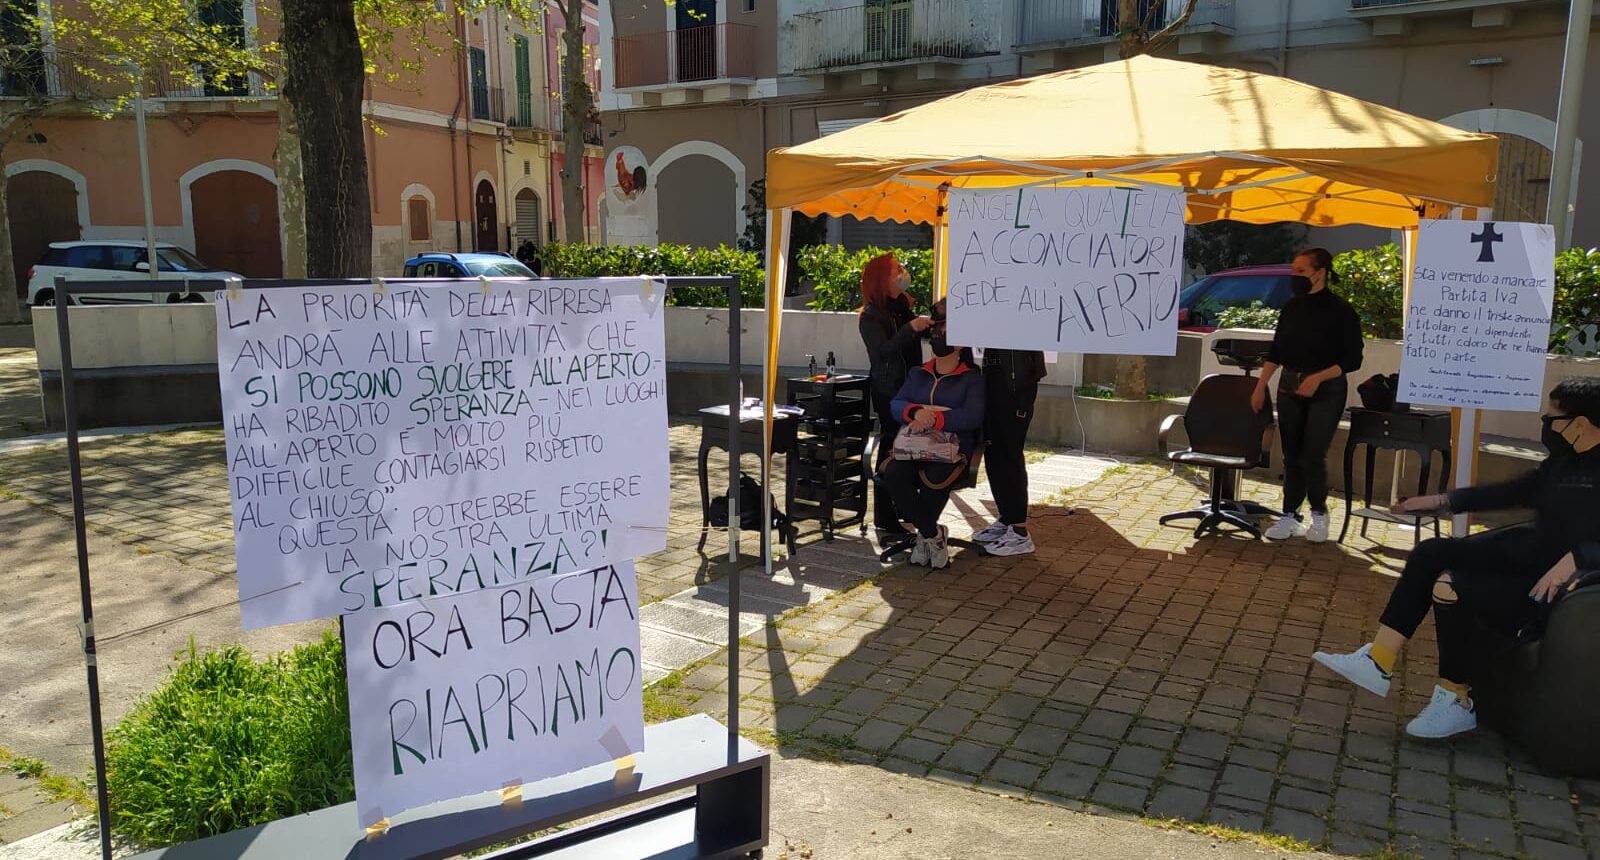 "LA PRIORITÀ DELLA RIPRESA
ANDRÀ ALLE ATTIVITÀ CHE
SI POSSONO SVOLGERE ALL'APERTO -
HA RIBADITO SPERANZA - NEI LUOGHI
ALL'APERTO È MOLTO PIÙ
DIFFICILE CONTAGIARSI RISPETTO
AL CHIUSO"
QUESTA POTREBBE ESSERE
LA NOSTRA ULTIMA
SPERANZA?!
ORA BASTA
RIAPRIAMO
ANGELA QUATELA
ACCONCIATORI
SEDE ALL'APERTO
Sta venendo a mancare
Partita Iva
ne danno il triste annuncio
i titolari e i dipendenti
e tutti coloro che ne hanno
fatto parte